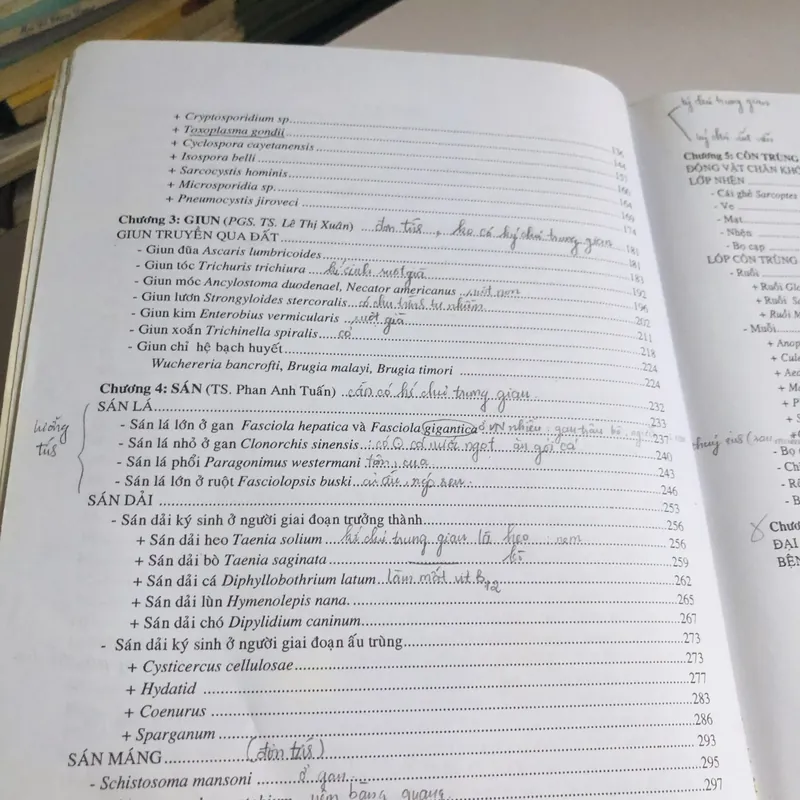 + Cryptosporidium sp
+ Toxoplasma gondii
+ Cyclospora cayetanensis 144
+ Isospora belli 157
+ Sarcocystis hominis 160
+ Microsporidia sp. 164
+ Pneumocystis jiroveci 169
174
Chương 3: GIUN (PGS. TS. Lê Thị Xuân) đơn tính, ko có ký chủ trung gian
GIUN TRUYỀN QUA ĐẤT 181
- Giun đũa Ascaris lumbricoides 181
- Giun tóc Trichuris trichiura kí sinh ruột già 183
- Giun móc Ancylostoma duodenael, Necator americanus ruột non 192
- Giun lươn Strongyloides stercoralis có chu trình tự nhiên 196
- Giun kim Enterobius vermicularis ruột già 202
- Giun xoắn Trichinella spiralis có 211
- Giun chỉ hệ bạch huyết 218
Wuchereria bancrofti, Brugia malayi, Brugia timori 224
224
Chương 4: SÁN (TS. Phan Anh Tuấn) cần có kí chủ trung gian
SÁN LÁ 232
lưỡng tính
- Sán lá lớn ở gan Fasciola hepatica và Fasciola gigantica ở VN nhiều: gan trâu bò 233
- Sán lá nhỏ ở gan Clonorchis sinensis : cá nước ngọt ăn gỏi cá 237
- Sán lá phổi Paragonimus westermani tôm, cua 240
- Sán lá lớn ở ruột Fasciolopsis buski củ ấu, ngó sen 243
SÁN DẢI 246
253
- Sán dải ký sinh ở người giai đoạn trưởng thành 256
+ Sán dải heo Taenia solium kí chủ trung gian là heo : nem 256
+ Sán dải bò Taenia saginata bò 259
+ Sán dải cá Diphyllobothrium latum làm mất vit B12 262
+ Sán dải lùn Hymenolepis nana. 265
+ Sán dải chó Dipylidium caninum 267
- Sán dải ký sinh ở người giai đoạn ấu trùng 273
+ Cysticercus cellulosae 273
+ Hydatid 277
+ Coenurus 283
+ Sparganum 286
SÁN MÁNG (đơn tính) 293
- Schistosoma mansoni ở gan 295
viêm bàng quang 297
ký chủ trung gian
ký chủ
Chương 5: CÔN TRÙNG
ĐỘNG VẬT CHÂN KHỚ
LỚP NHỆN
- Cái ghẻ Sarcoptes
- Ve
- Mạt
- Nhện
- Bọ cạp
LỚP CÔN TRÙNG
- Ruồi
+ Ruồi Glo
+ Ruồi Sa
+ Ruồi M
- Muỗi
+ Anop
+ Cule
+ Aed
+ Ma
+ P
+ S
- Bọ
- Ch
- Rệ
- B
Chươ
ĐẠI
BỆN